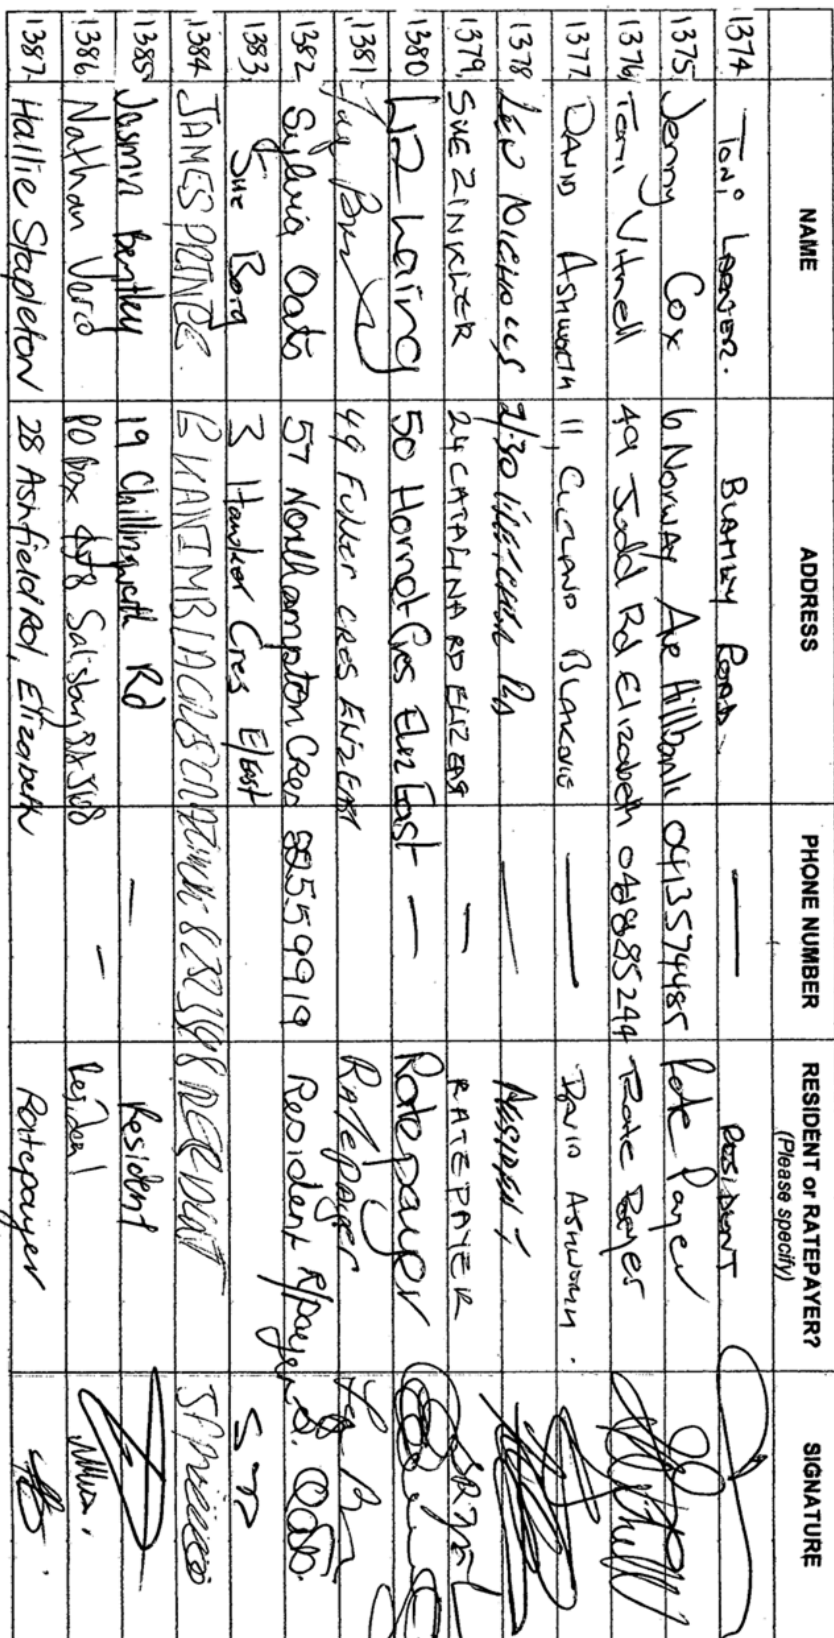 NAME ADDRESS PHONE NUMBER RESIDENT or RATEPAYER? (Please specify) SIGNATURE
1374 Toni BLAMEY ROAD — RESIDENT
1375 Jenny Cox 6 Norway Ave Hillbank 0413574485 Rate Payer
1376 Toni Vitnell 49 Judd Rd Elizabeth Rate Payer
1377 DAVID ASHWORTH 11, BLAKEVIE — DAVID ASHWORTH.
1378 LEN NICHOLLS 2/30 RD — RESIDENT
1379, SUE ZINKLER 24 CATALINA RD ELIZ EAST — RATEPAYER
1380 LIZ Laing 50 Hornet Cres Eliz East — Ratepayer
1381 49 FULLER CRES ELIZ EAST RATEPAYER
1382 Sylvia Oats 57 Northampton Cres 82559919 Resident R/payer S. Oats.
1383 Sue 3 Hawker Cres E/East
1384 JAMES PRINCE. RESIDENT
1385 Jasmin Bentley 19 Chillingworth Rd — Resident
1386 Nathan PO Box Salisbury SA 5108 — Resident
1387 Hallie Stapleton 28 Ashfield Rd, Elizabeth Ratepayer